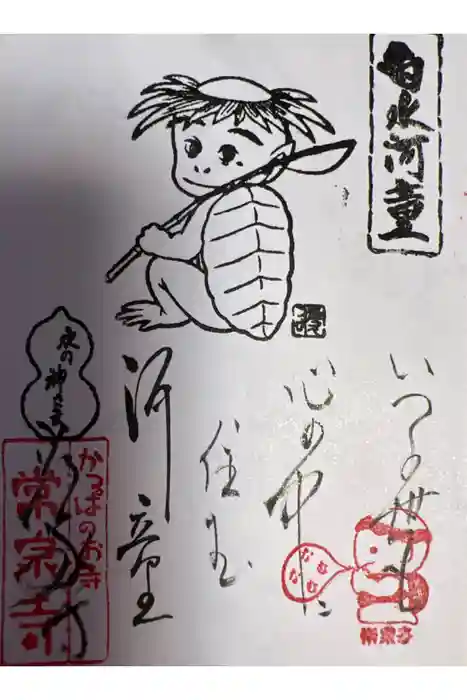 白水河童
いつの世も
心の中に
住む
河童
水の神さま
かっぱのお寺
常泉寺
常泉寺